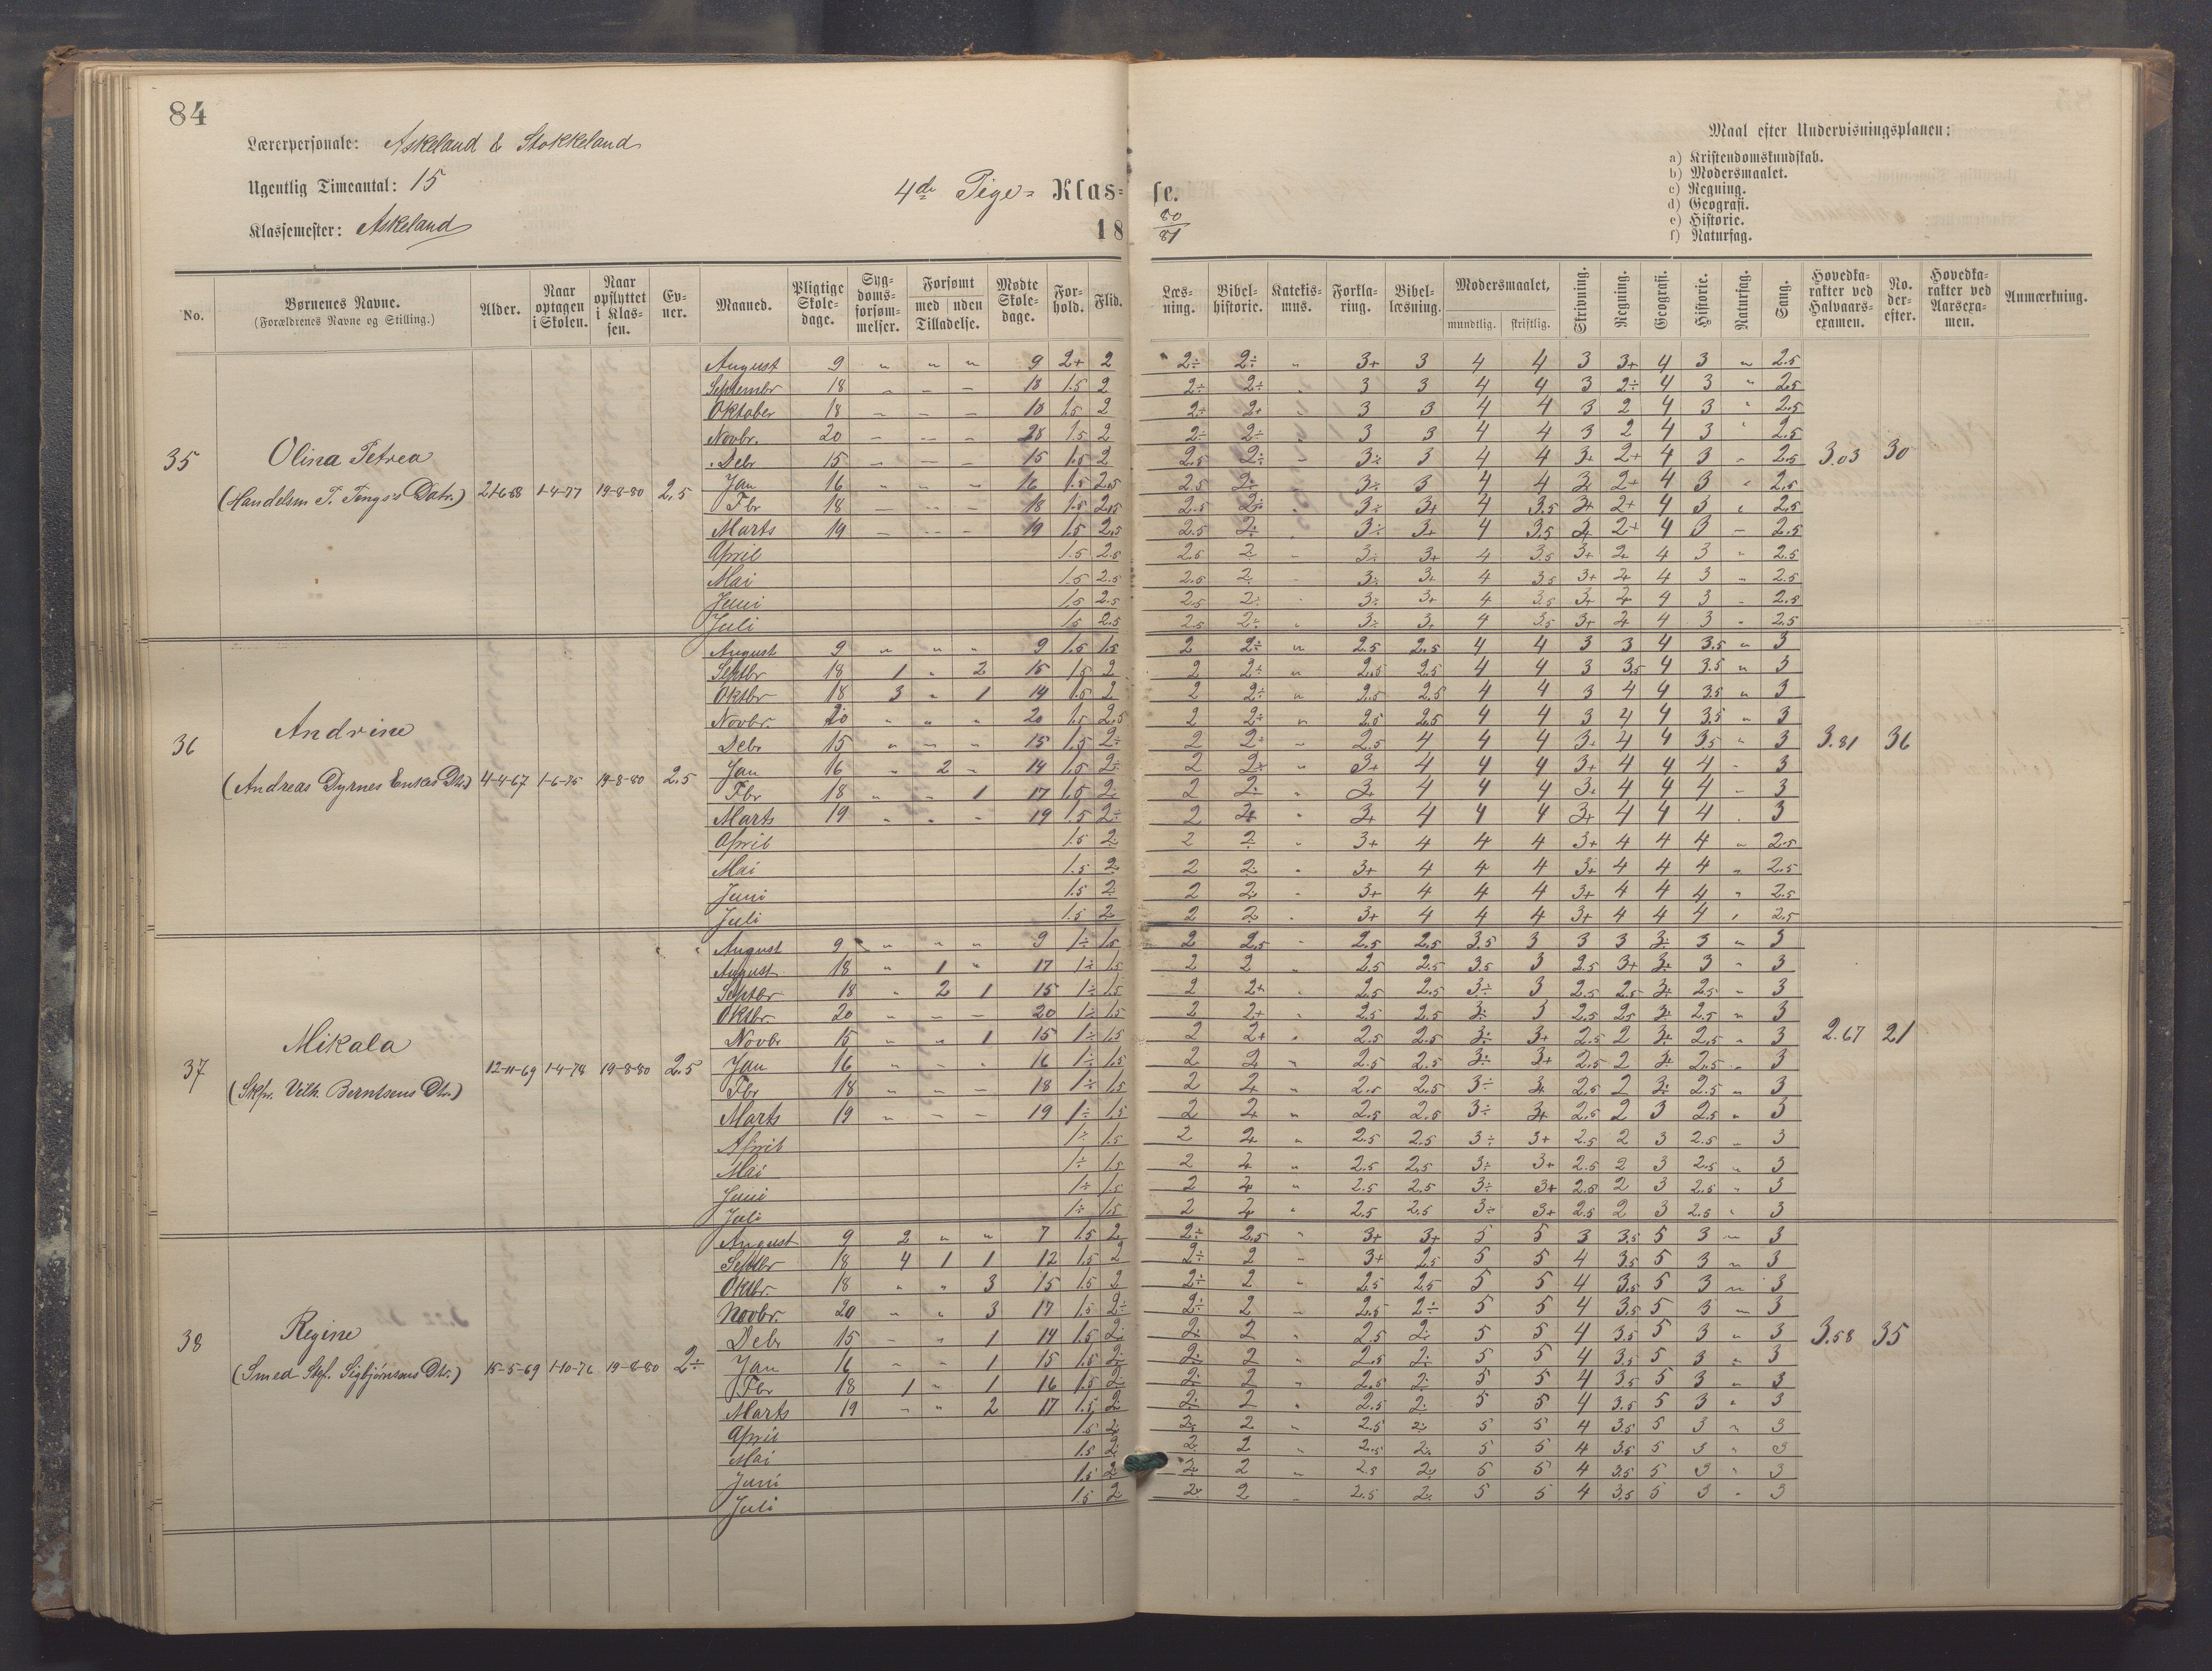 84
Lærerpersonale: Askeland & Stokkeland
Ugentlig Timeantal: 15
Klassemester: Askeland
4de Pige= Klas= se.
18 80/81
Maal efter Undervisningsplanen:
a) Kristendomskundskab.
b) Modersmaalet.
c) Regning.
d) Geografi.
e) Historie.
f) Naturfag.
No. Børnenes Navne. (Forældrenes Navne og Stilling.) Alder. Naar optagen i Skolen. Naar opflyttet i Klassen. Evner. Maaned. Pligtige Skoledage. Sygdomsforsømmelser. Forsømt med uden Tilladelse. Mødte Skoledage. Forhold. Flid. Læsning. Bibelhistorie. Katekismus. Forklaring. Bibellæsning. Modersmaalet, mundtlig. skriftlig. Skrivning. Regning. Geografi. Historie. Naturfag. Sang. Hovedkarakter ved Halvaarsexamen. No. derefter. Hovedkarakter ved Aarsexamen. Anmærkning.
August 9 " " " 9 2+ 2 2÷ 2÷ " 3+ 3 4 4 3 3+ 4 3 " 2.5
Septembr 18 – – – 18 1.5 2 2÷ 2÷ " 3 3 4 4 3 2÷ 4 3 " 2.5
Oktober 18 – – – 18 1.5 2 2÷ 2+ " 3 3 4 4 3 2 4 3 " 2.5
Novbr. 20 – – – 20 1.5 2 2÷ 2÷ " 3 3 4 4 3 2 4 3 " 2.5
35 Olina Petrea Debr 15 – – – 15 1.5 2 2.5 2÷ " 3÷ 3 4 4 3+ 2+ 4 3 " 2.5 3.03 30
(Handelsm T. Tengs's Datr.) 1-4-77 19-8-80 2.5 Jan 16 " – – 16 1.5 2.5 2.5 2÷ " 3÷ 3 4 4 3+ 2+ 4 3 " 2.5
Fbr 18 – – – 18 1.5 2.5 2.5 2÷ " 3÷ 3+ 4 3.5 3+ 2+ 4 3 " 2.5
Marts 19 – – – 19 1.5 2.5 2.5 2÷ " 3÷ 3+ 4 3.5 3+ 2+ 4 3 – 2.5
April 1.5 2.5 2.5 2 – 3÷ 3+ 4 3.5 3+ 2+ 4 3 " 2.5
Mai 1.5 2.5 2.5 2 – 3÷ 3+ 4 3.5 3+ 2+ 4 3 " 2.5
Juni 1.5 2.5 2.5 2÷ – 3÷ 3+ 4 3.5 3+ 2+ 4 3 – 2.5
Juli 1.5 2.5 2.5 2÷ " 3÷ 3+ 4 3.5 3+ 2+ 4 3 " 2.5
August 9 " " " 9 1.5 1.5 2 2÷ " 2.5 2.5 4 4 3 3 4 3.5 " 3
Septbr 18 1 " 2 15 1.5 2 2 2÷ " 2.5 2.5 4 4 3 3.5 4 3.5 " 3
Oktbr 18 3 " 1 14 1.5 2 2 2÷ " 2.5 2.5 4 4 3 4 4 3.5 " 3
Novbr. 20 " " " 20 1.5 2.5 2 2÷ " 2.5 2.5 4 4 3 4 4 3.5 " 3
36 Andrine Debr 15 " – " 15 1.5 2÷ 2 2÷ – 2.5 4 4 4 3+ 4 4 3.5 " 3 3.81 36
(Andreas Dyrnes Enkes Dtr.) 4-4-67 1-6-75 19-8-80 2.5 Jan 16 " 2 " 14 1.5 2÷ 2 2+ " 3+ 4 4 4 3+ 4 4 4 – 3
Fbr 18 " " 1 17 1.5 2÷ 2 2÷ " 3+ 4 4 4 3+ 4 4 4 – 3
Marts 19 " " – 19 1.5 2÷ 2 2+ " 3+ 4 4 4 3+ 4 4 4 " 3
April 1.5 2÷ 2 2 " 3+ 4 4 4 3+ 4 4 4 " 2.5
Mai 1.5 2 2 2 " 3+ 4 4 4 3+ 4 4 4 " 2.5
Juni 1.5 2 2 2 " 3+ 4 4 4 3+ 4 4 4 " 2.5
Juli 1.5 2 2 2 " 3+ 4 4 4 3+ 4 4 4 " 2.5
August 9 " " " 9 1÷ 1.5 2 2.5 " 2.5 2.5 3.5 3 3 3 3÷ 3 " 3
August 18 " 1 " 17 1÷ 1.5 2 2 " 2.5 2.5 3.5 3 2.5 3+ 3÷ 3 " 3
Septbr 18 " 2 1 15 1÷ 1.5 2 2+ " 2.5 2.5 3÷ 3 2.5 2.5 3÷ 2.5 – 3
Oktbr. 20 – – – 20 1÷ 1.5 2 2+ " 2.5 2.5 3÷ 3 2.5 2.5 3÷ 2.5 " 3
37 Mikala Novbr 15 " " 1 15 1÷ 1.5 2 2+ " 2.5 2.5 3÷ 3+ 2.5 2 3÷ 2.5 " 3 2.67 21
(Skpr. Vilh. Berntsens Dtr.) 12-11-69 1-4-78 19-8-80 2.5 Jan 16 " – " 16 1÷ 1.5 2 2+ " 2.5 2.5 3÷ 3+ 2.5 2 3÷ 2.5 – 3
Fbr 18 " – – 18 1÷ 1.5 2 2+ " 2.5 2.5 3÷ 3+ 2.5 2 3÷ 2.5 " 3
Marts 19 " – – 19 1÷ 1.5 2 2+ " 2.5 2.5 3÷ 3+ 2.5 2 3 2.5 " 3
April 1÷ 1.5 2 2+ " 2.5 2.5 3÷ 3+ 2.5 2 3 2.5 – 3
Mai 1÷ 1.5 2 2+ " 2.5 2.5 3÷ 3+ 2.5 2 3 2.5 " 3
Juni 1÷ 1.5 2 2+ " 2.5 2.5 3÷ 3+ 2.5 2 3 2.5 " 3
Juli 1÷ 1.5 2 2+ " 2.5 2.5 3÷ 3+ 2.5 2 3 2.5 " 3
August 9 2 " " 7 1.5 2 2÷ 2.5 " 3+ 3+ 5 5 3 3.5 5 3 – 3
Septbr 18 4 1 1 12 1.5 2 2÷ 2 – 3+ 2.5 5 5 4 3.5 5 3 " 3
Oktbr. 18 " " 3 15 1.5 2 2÷ 2 " 2.5 2.5 5 5 4 3.5 5 3 " 3
Novbr. 20 " " 3 17 1.5 2÷ 2÷ 2 – 2.5 2÷ 5 5 4 3.5 5 3 – 3
38 Regine Debr 15 – " 1 14 1.5 2÷ 2÷ 2 " 2.5 2÷ 5 5 4 3.5 5 3 " 3 3.58 35
(Smed Stef. Sigbjørnsens Dtr.) 15-5-69 1-10-76 19-8-80 2÷ Jan 16 – – 1 15 1.5 2÷ 2÷ 2 " 2.5 2÷ 5 5 4 3.5 5 3 " 3
Fbr 18 1 " 1 16 1.5 2÷ 2÷ 2 " 2.5 2÷ 5 5 4 3.5 5 3 " 3
Marts 19 " " 2 17 1.5 2÷ 2÷ 2 " 2.5 2÷ 5 5 4 3.5 5 3 " 3
April 1.5 2÷ 2÷ 2 " 2.5 2÷ 5 5 4 3.5 5 3 " 3
Mai 1.5 2 2 2 " 2.5 2÷ 5 5 4 3.5 5 3 " 3
Juni 1.5 2 2 2 " 2.5 2÷ 5 5 4 3.5 5 3 " 3
Juli 1.5 2 2÷ 2 – 2.5 2÷ 5 5 4 3.5 5 3 " 3